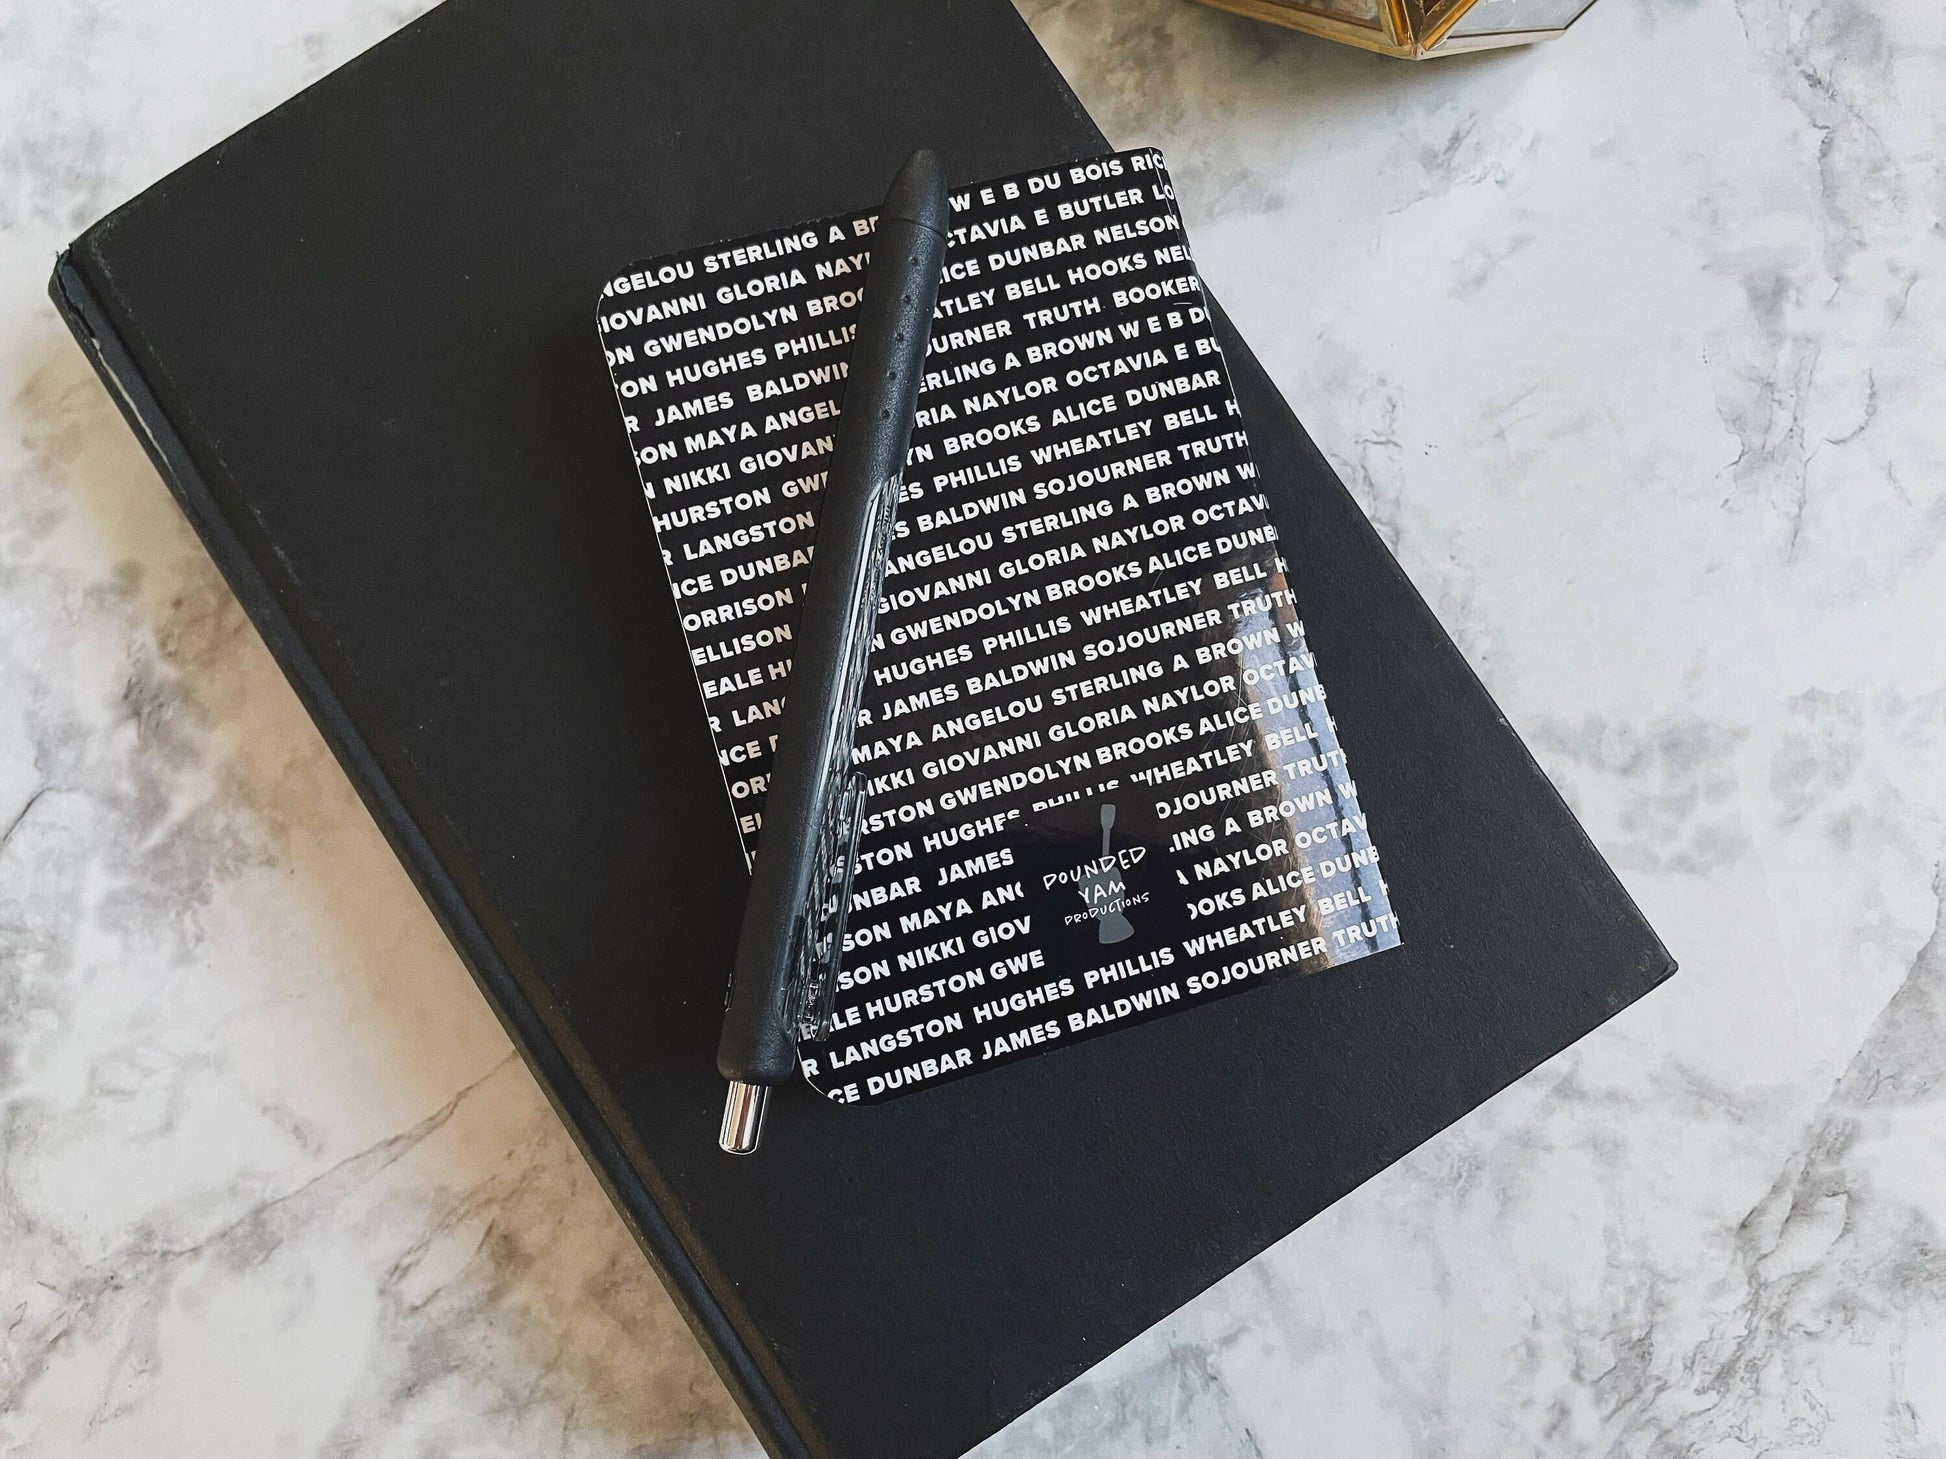 NGELOU STERLING A BR W E B DU BOIS RIC
IOVANNI GLORIA NAYL CTAVIA E BUTLER LO
ON GWENDOLYN BROO ICE DUNBAR NELSON
TON HUGHES PHILLIS ATLEY BELL HOOKS NEL
R JAMES BALDWIN OURNER TRUTH BOOKER
SON MAYA ANGEL ERLING A BROWN W E B DU
N NIKKI GIOVAN RIA NAYLOR OCTAVIA E BU
HURSTON GWE YN BROOKS ALICE DUNBAR
R LANGSTON ES PHILLIS WHEATLEY BELL H
ICE DUNBA S BALDWIN SOJOURNER TRUTH
ORRISON ANGELOU STERLING A BROWN W
ELLISON GIOVANNI GLORIA NAYLOR OCTAV
EALE H N GWENDOLYN BROOKS ALICE DUNB
R LAN HUGHES PHILLIS WHEATLEY BELL H
NCE R JAMES BALDWIN SOJOURNER TRUTH
OR MAYA ANGELOU STERLING A BROWN W
EL IKKI GIOVANNI GLORIA NAYLOR OCTAV
RSTON GWENDOLYN BROOKS ALICE DUNB
STON HUGHES PHILLIS WHEATLEY BELL H
NBAR JAMES OJOURNER TRUT
SON MAYA ANG LING A BROWN W
SON NIKKI GIOV NAYLOR OCTAV
LE HURSTON GWE OOKS ALICE DUNB
R LANGSTON HUGHES PHILLIS WHEATLEY BELL H
CE DUNBAR JAMES BALDWIN SOJOURNER TRUTH
POUNDED
YAM
PRODUCTIONS